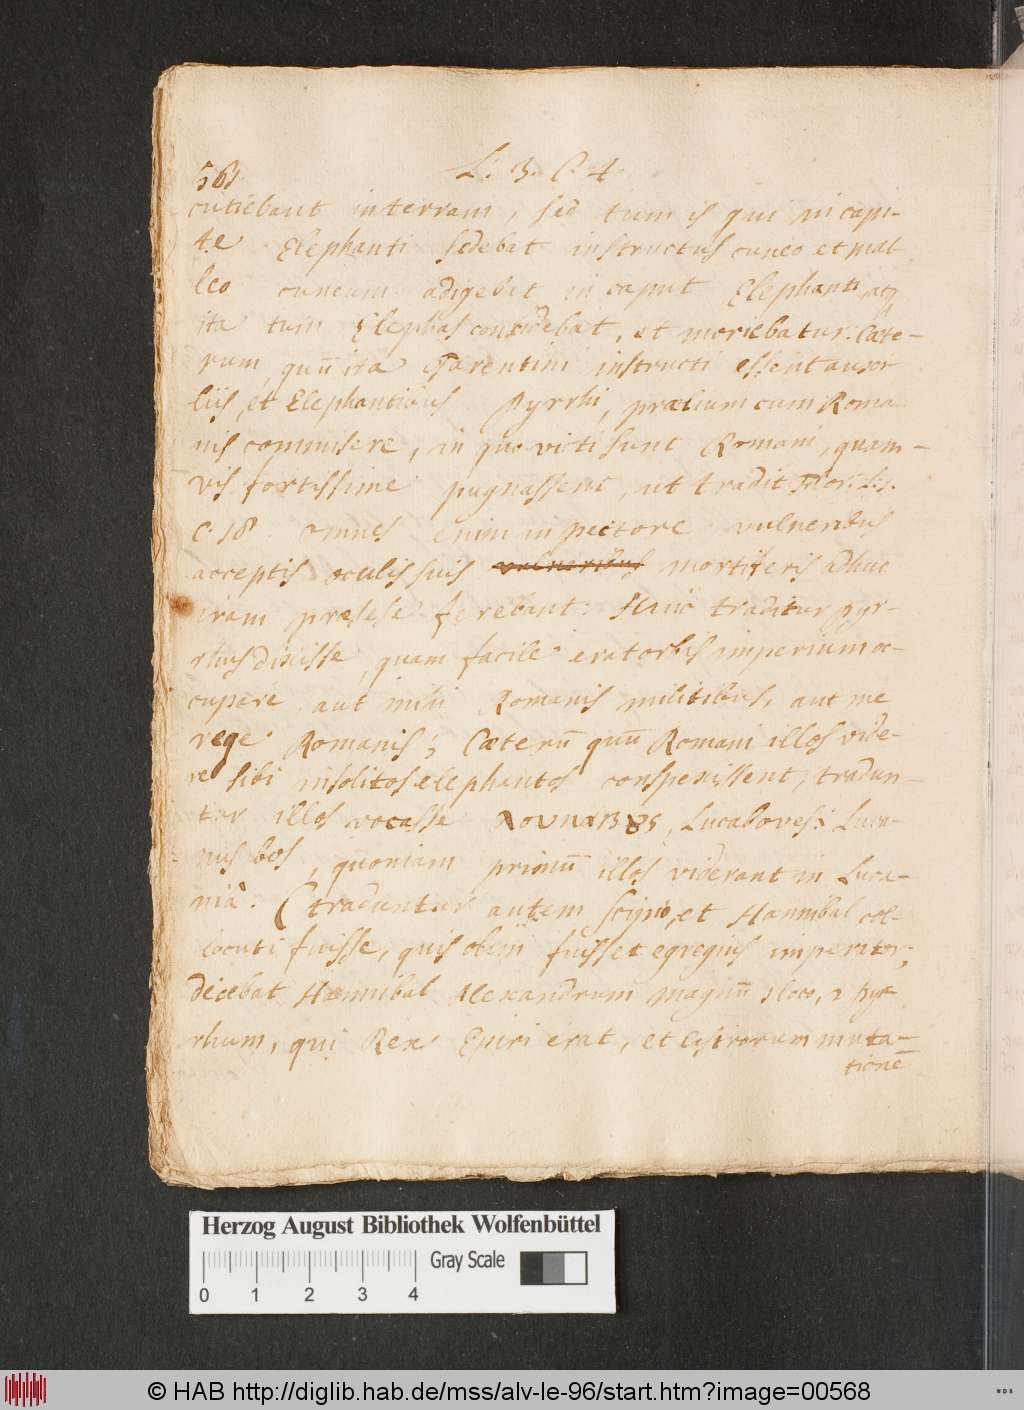 561. L. 3. C. 4
cutiebant in terram, sed tum is qui in capi-
te Elephanti sedebat instructus cuneo et mal
leo cuneum adigebat in caput Elephanti, atq
ita tum Elephas considebat, et moriebatur. Cæte-
rum, quū ita Tarentini instructi essent auxi
liis, et Elephantibus Pyrrhi, prælium cum Roma
nis commisere, in quo victi sunt Romani, quam-
vis fortissime pugnassent, ut tradit Flor. L. 1.
C. 18. omnes enim in pectore vulneribus
acceptis oculis suis vulneribus mortiferis adhuc
iram præ se ferebant. Hinc traditur pyr-
rhus dixisse, quam facile erat orbis imperium oc-
cupare aut mihi Romanis militibus, aut me
rege Romanis; Cæterū quū Romani illos vide-
re sibi insolitos elephantos conspexissent, tradun-
tur illos vocasse , Lucaboves: Luca-
nus bos, quoniam primū illos viderant in Luca-
niâ. (traduntur autem Scipio, et Hannibal col-
locuti fuisse, quis fuisset egregius imperator,
dicebat Hannibal Alexandrum magnū 1 loco, 2 Pyr
rhum, qui Rex Epiri erat, et castrorum muta-
tionē
Herzog August Bibliothek Wolfenbüttel
Gray Scale
0 1 2 3 4
© HAB http://diglib.hab.de/mss/alv-le-96/start.htm?image=00568